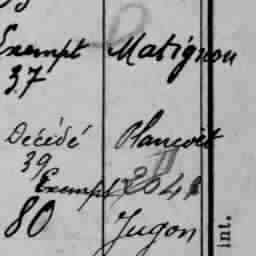 Exempt Matignon
37
Décédé Plancoët
39
Exempt 2041
80 Jugon
int.